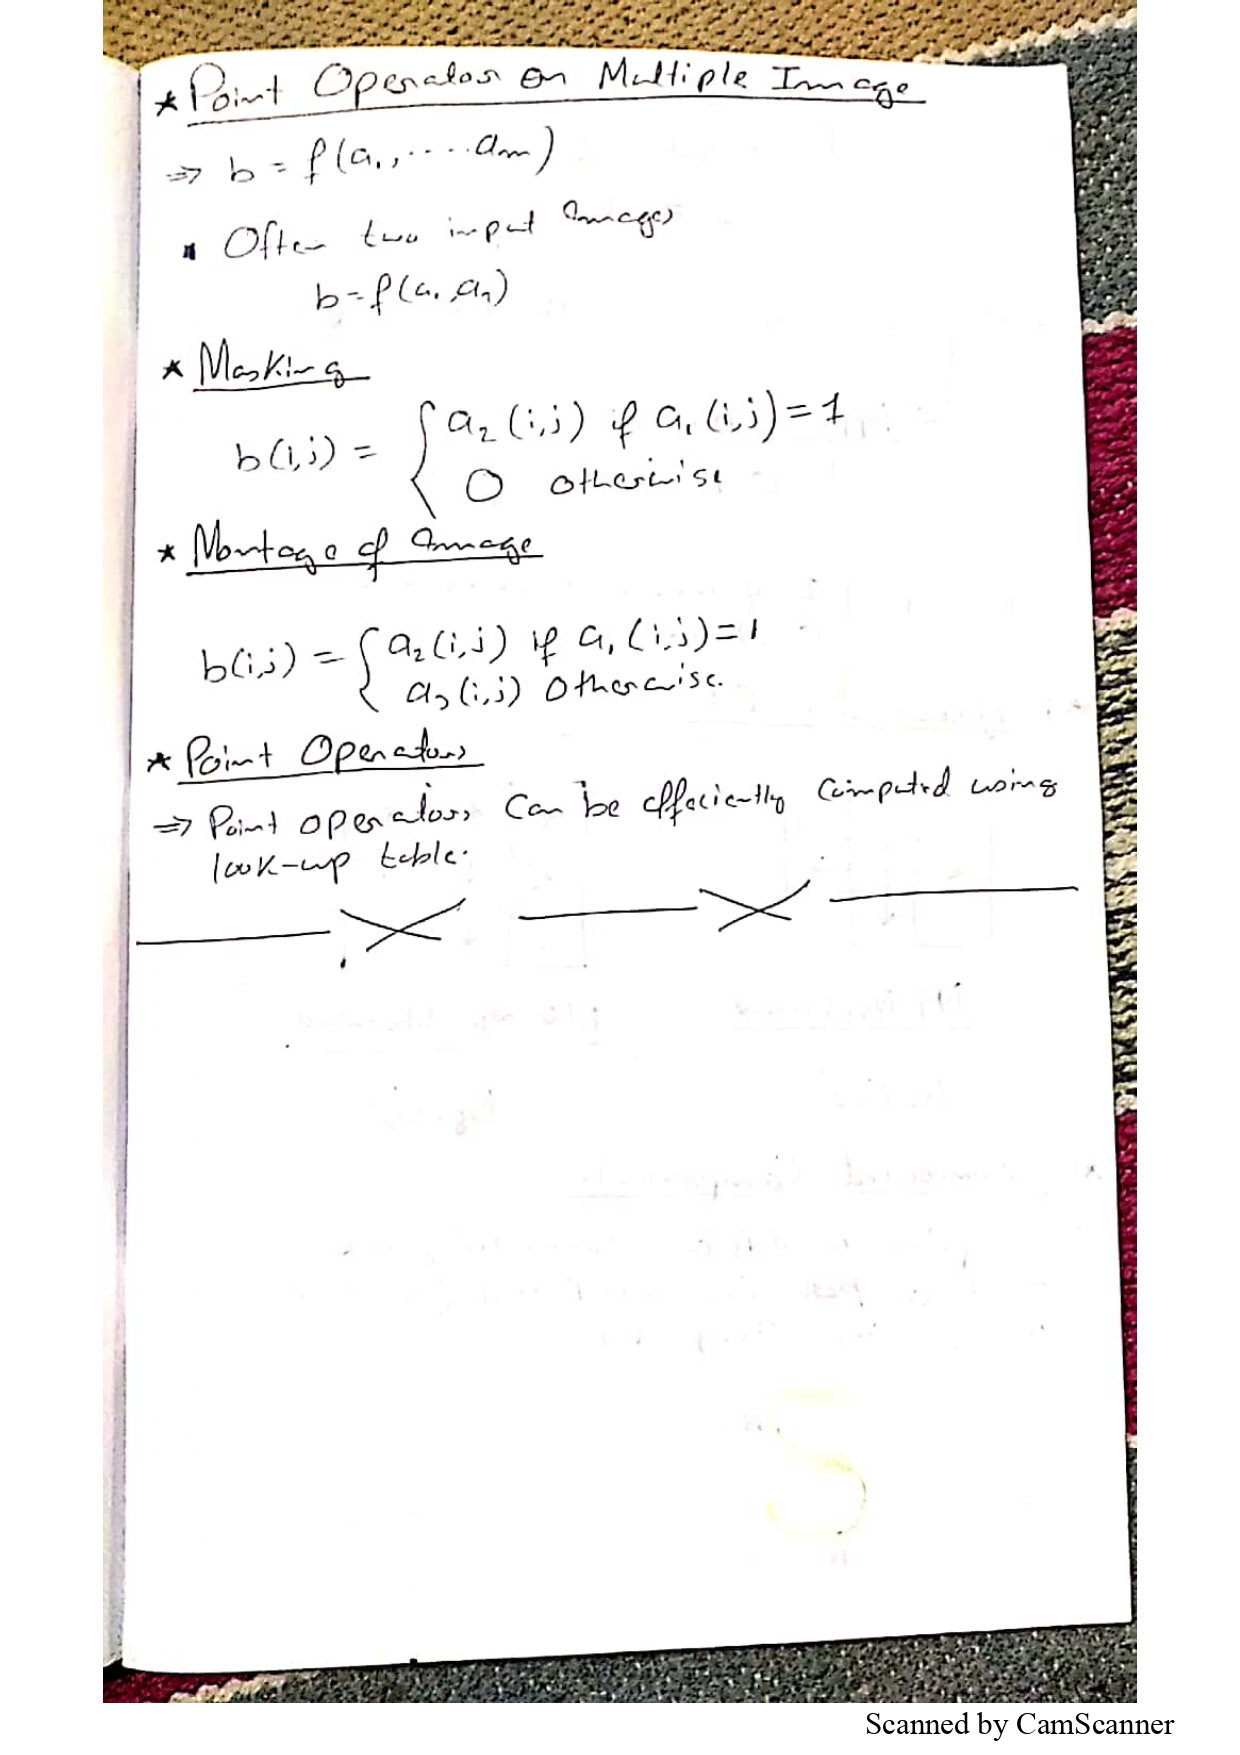 * Point Operator on Multiple Image
⇒ b = f(a₁, ....am)
▪ Often two input Images
b = f(a₁, a₂)
* Masking
b(i,j) = { a₂(i,j) if a₁(i,j) = 1
0 otherwise
* Montage of Image
b(i,j) = { a₂(i,j) if a₁(i,j) = 1
a₃(i,j) otherwise.
* Point Operators
⇒ Point operators can be effeciently computed using
look-up table.
Scanned by CamScanner